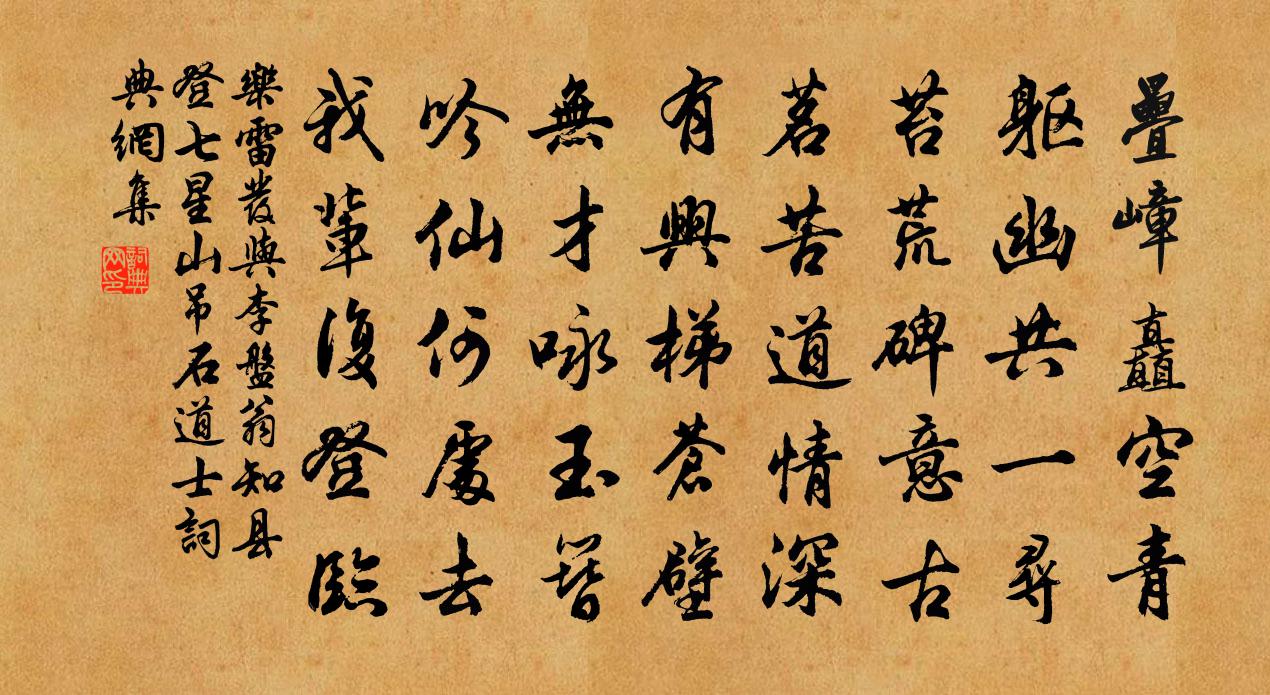 疊嶂矗空青
軀幽共一尋
苔荒碑意古
茗苦道情深
有興梯蒼壁
無才咏玉簪
吟仙何處去
我輩復登臨
樂雷發與李盤翁知县
登七星山吊石道士詞
典網集
詞典网印